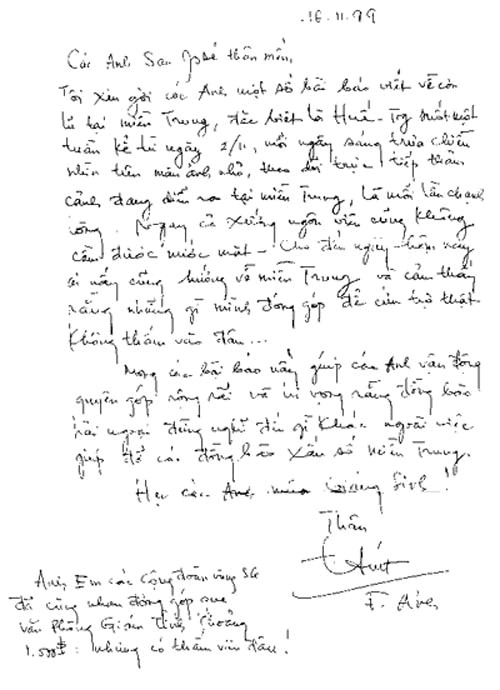 16.11.99
Các Anh San José thân mến,
Tôi xin gởi các Anh một số bài báo viết về cơn
lũ tại miền Trung, đặc biệt là Huế. Trg suốt một
tuần kể từ ngày 2/11, mỗi ngày sáng trưa chiều
nhìn trên màn ảnh nhỏ, theo dõi trực tiếp thảm
cảnh đang diễn ra tại miền Trung, là mỗi lần chạnh
lòng. Ngay cả xướng ngôn viên cũng không
cầm được nước mắt - Cho đến ngày hôm nay
ai nấy cũng hướng về miền Trung và cảm thấy
rằng những gì mình đóng góp để cứu trợ thật
không thấm vào đâu...
Mong các bài báo nầy giúp các Anh vận động
quyên góp rộng rãi và hi vọng rằng đồng bào
hải ngoại đừng nghĩ đến gì khác ngoài việc
giúp đỡ các đồng bào xấu số miền Trung.
Hẹn các Anh mùa Giáng Sinh!
Thân
F.
Anh Em các Cộng đoàn vùng SG
đã cùng nhau đóng góp qua
văn Phòng Giám Tỉnh khoảng
1.500$: nhưng có thấm vào đâu!